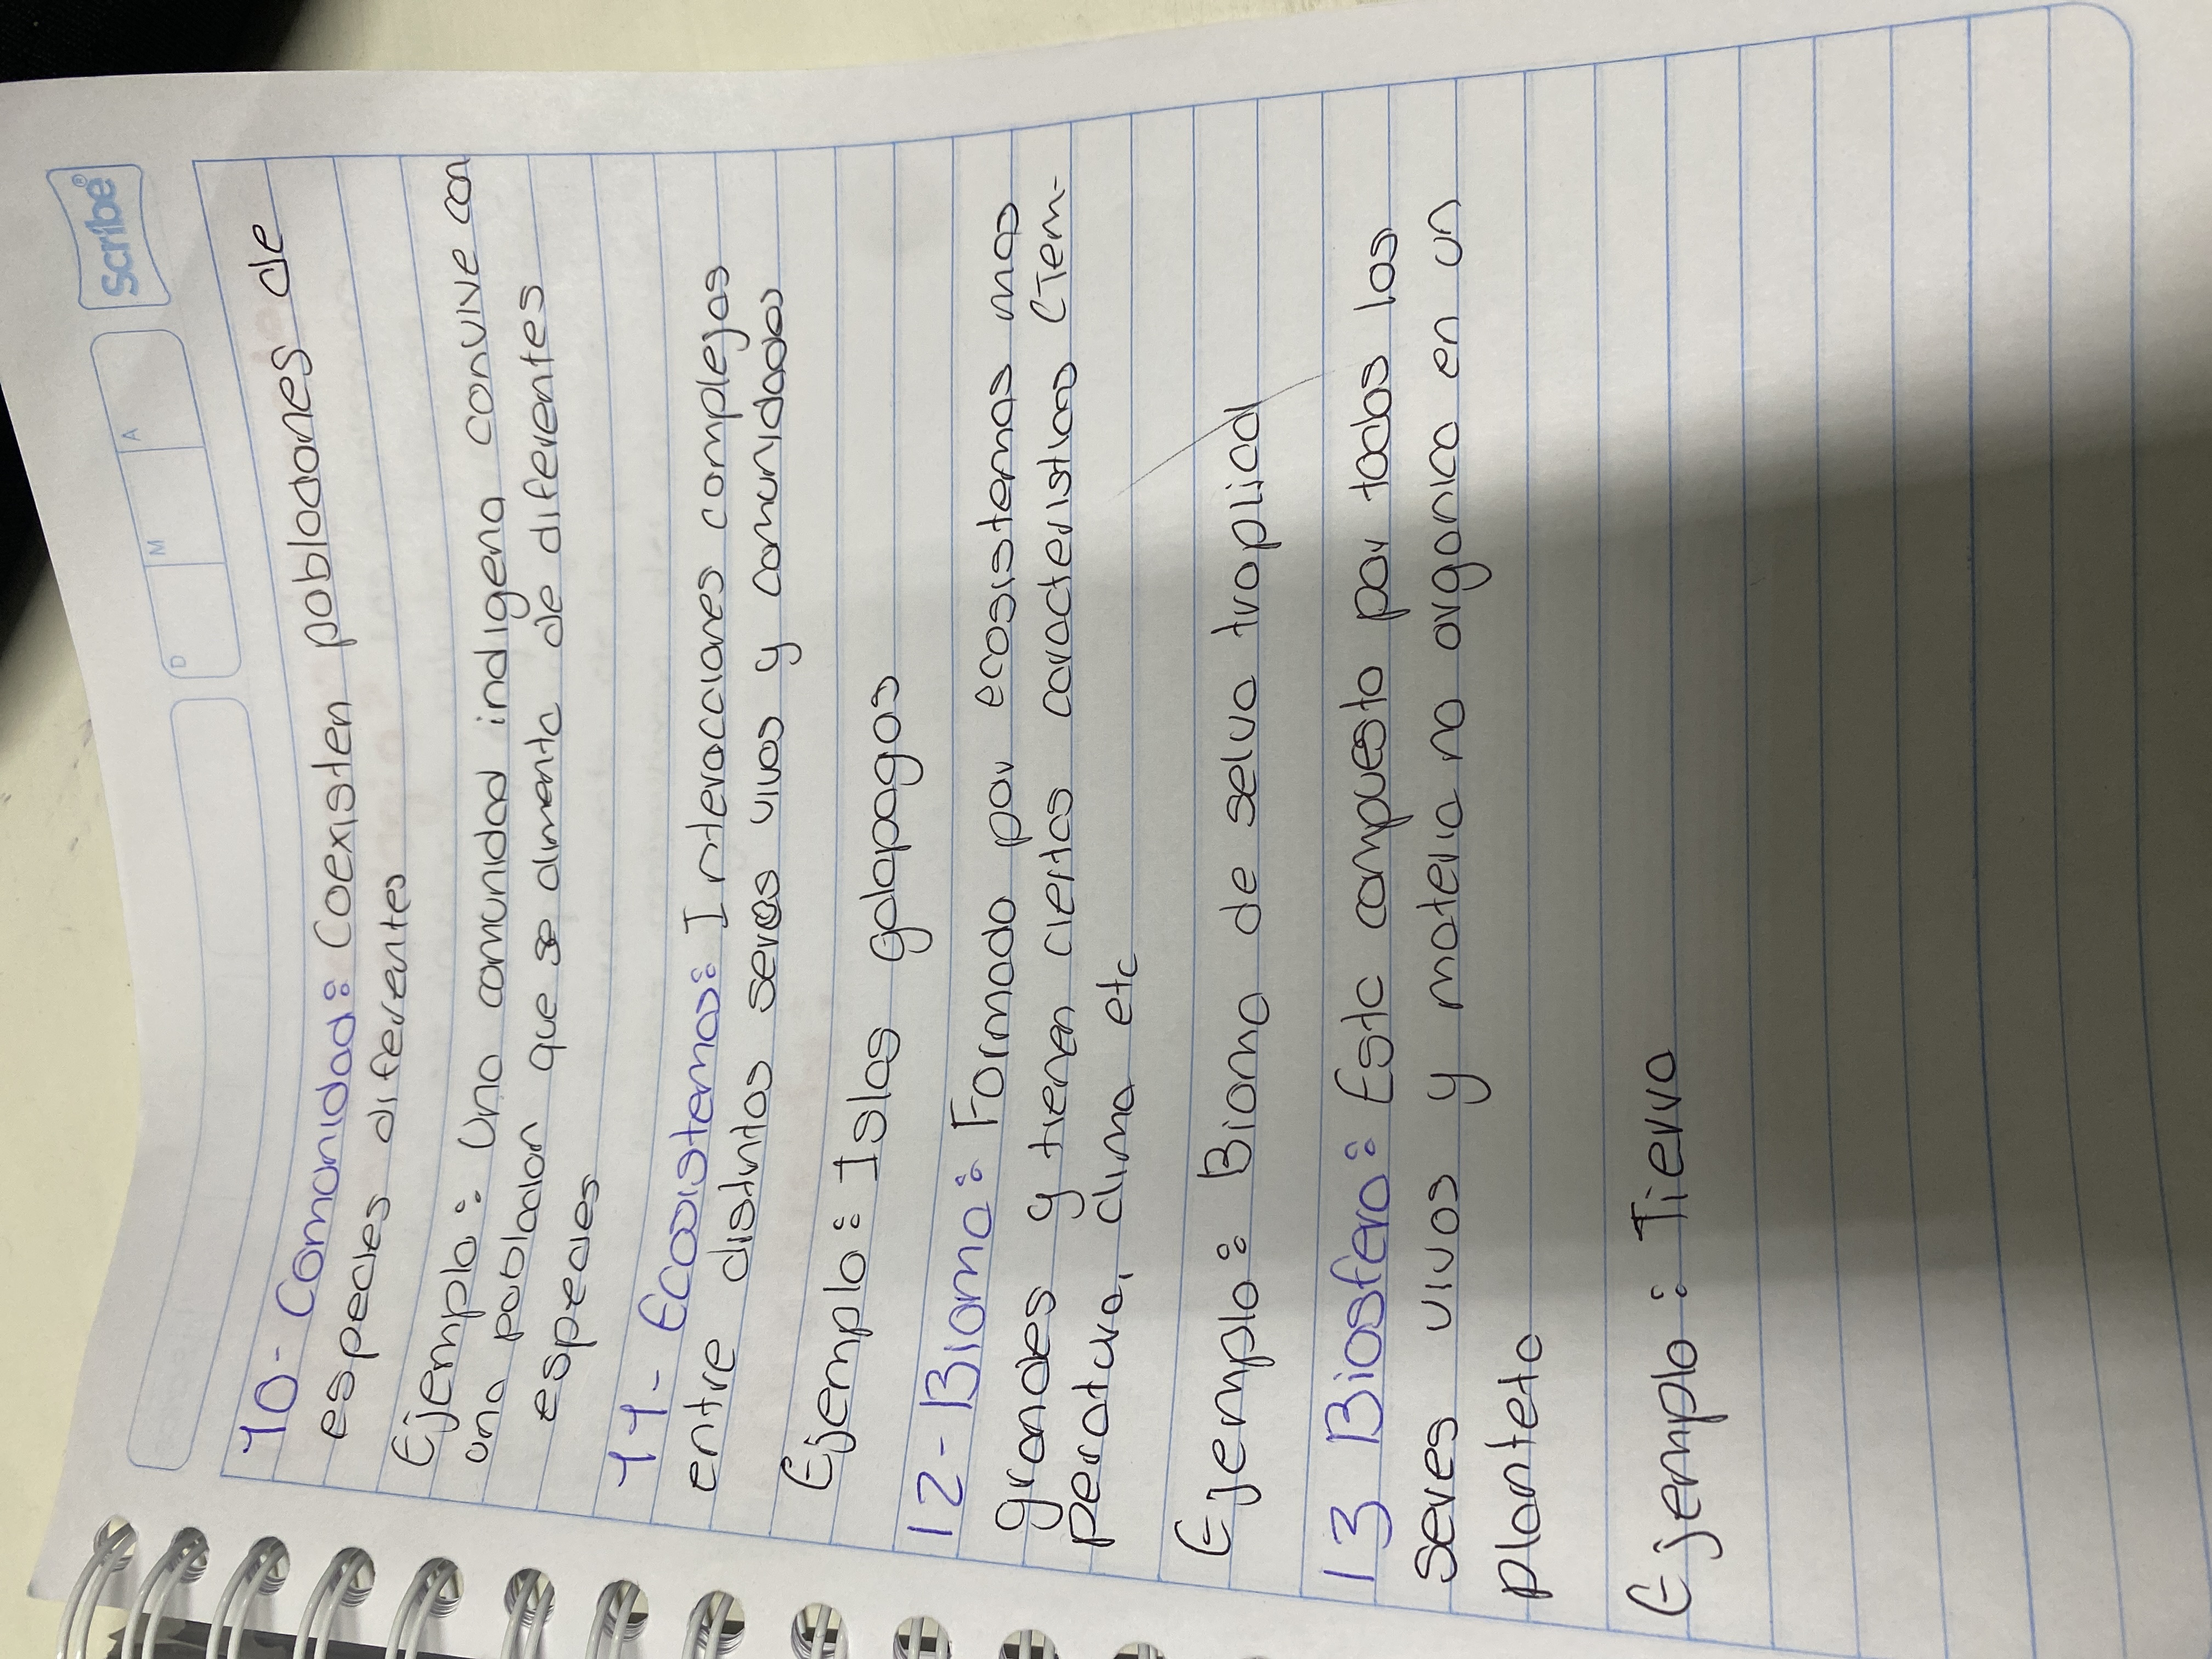 Scribe®
D M A
10- Comunidad: Coexisten poblaciones de
especies diferentes
Ejemplo: Una comunidad indigena convive con
una poblacion que se alimenta de diferentes
especies
11- Ecosistemas: Interacciones complejas
entre distintos seres vivos y comunidades
Ejemplo: Islas galapagos
12- Bioma: Formado por ecosistemas mas
grandes y tienen ciertas caracteristicas (Tem-
peratura, clima etc
Ejemplo: Bioma de selva troplical
13 Biosfera: Esta compuesto por todos los
seres vivos y materia no organica en un
planteta
Ejemplo: Tierra